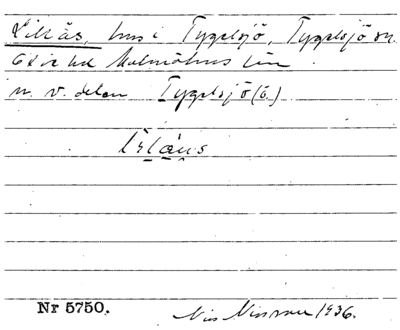 Lillås, hus i Tygelsjö, Tygelsjö sn.
Oxie hd Malmöhus län
n. v. delen Tygelsjö (b.)
Nr 5750.
Nils Nilsson 1936.